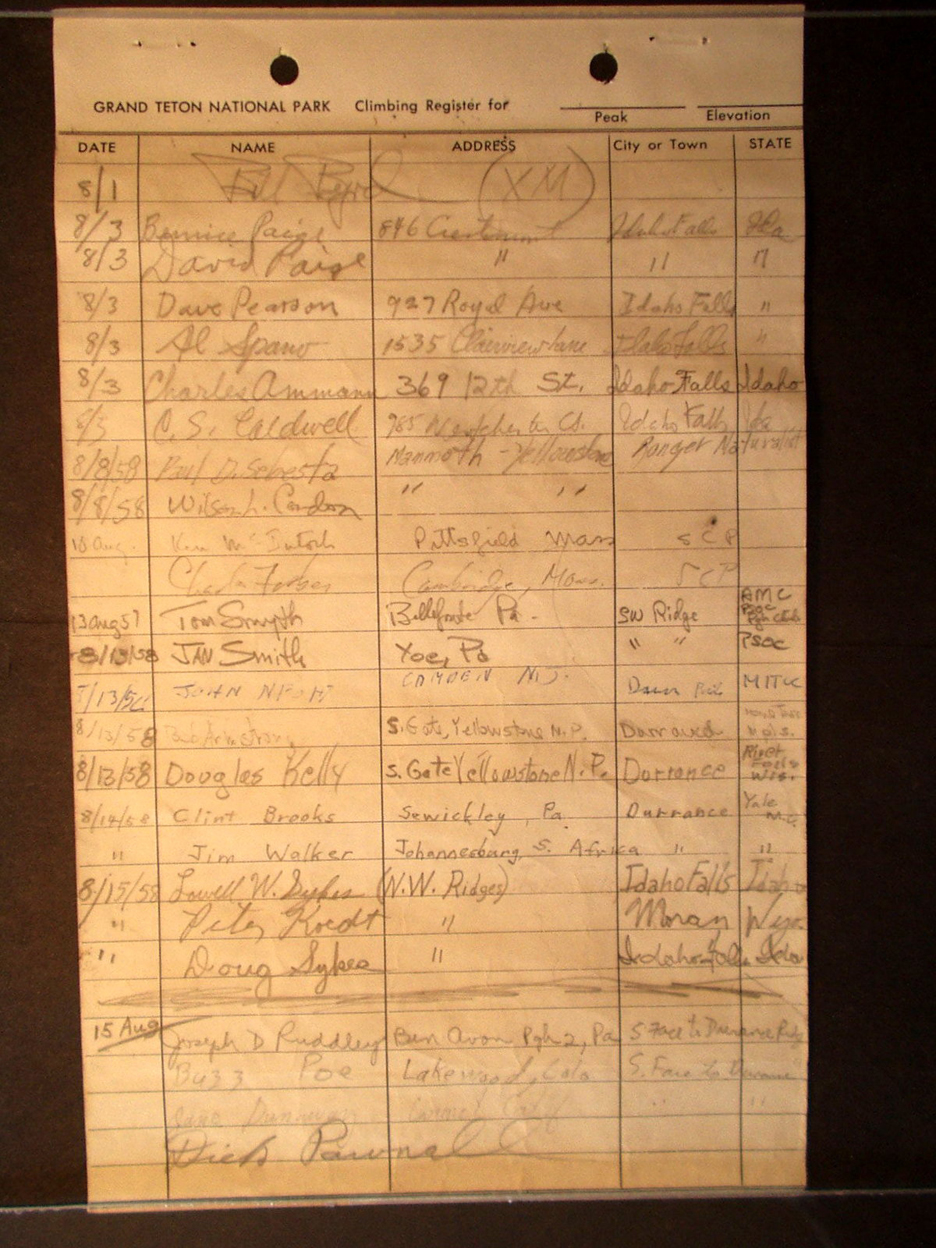 GRAND TETON NATIONAL PARK Climbing Register for
Peak Elevation
DATE NAME ADDRESS City or Town STATE
8/1 Bill Byrd (XM)
8/3 Bernice Paige 846 Idaho Falls Ida
8/3 David Paige " " "
8/3 Dave Pearson 927 Royal Ave Idaho Falls "
8/3 Al Spano 1535 Clairview Lane Idaho Falls "
8/3 Charles Ammann 369 12th St. Idaho Falls Idaho
8/3 C. S. Caldwell 985 Idaho Falls Ida
8/8/58 Paul D. Sebesta Mammoth - Yellowstone Ranger Naturalist
8/8/58 Wilson L. " "
10 Aug. Ken McIntosh Pittsfield Mass SCP
Charles Forbes Cambridge, Mass. SCP
13 Aug 57 Tom Smyth Bellefonte Pa. SW Ridge AMC
8/13/58 JAN Smith Yoe, Pa " " PSOC
JOHN CAMDEN NJ. MITOC
8/13/58 Bob Armstrong S. Gate, Yellowstone N.P.
8/13/58 Douglas Kelly S. Gate Yellowstone N.P. Durrance River Falls Wis.
8/14/58 Clint Brooks Sewickley, Pa Durrance Yale M.C.
" Jim Walker Johannesburg, S. Africa " "
8/15/58 Lowell W. Sykes (N.W. Ridges) Idaho Falls Idaho
" Peter Koedt " Moran Wyo.
" Doug Sykes " Idaho Falls Ida
15 Aug Joseph D Ben Avon Pgh 2, Pa S Face to Durrance Ridg
Buzz Poe Lakewood, Colo S. Face to Durrance
Carmel Calif " "
Dick Pownall